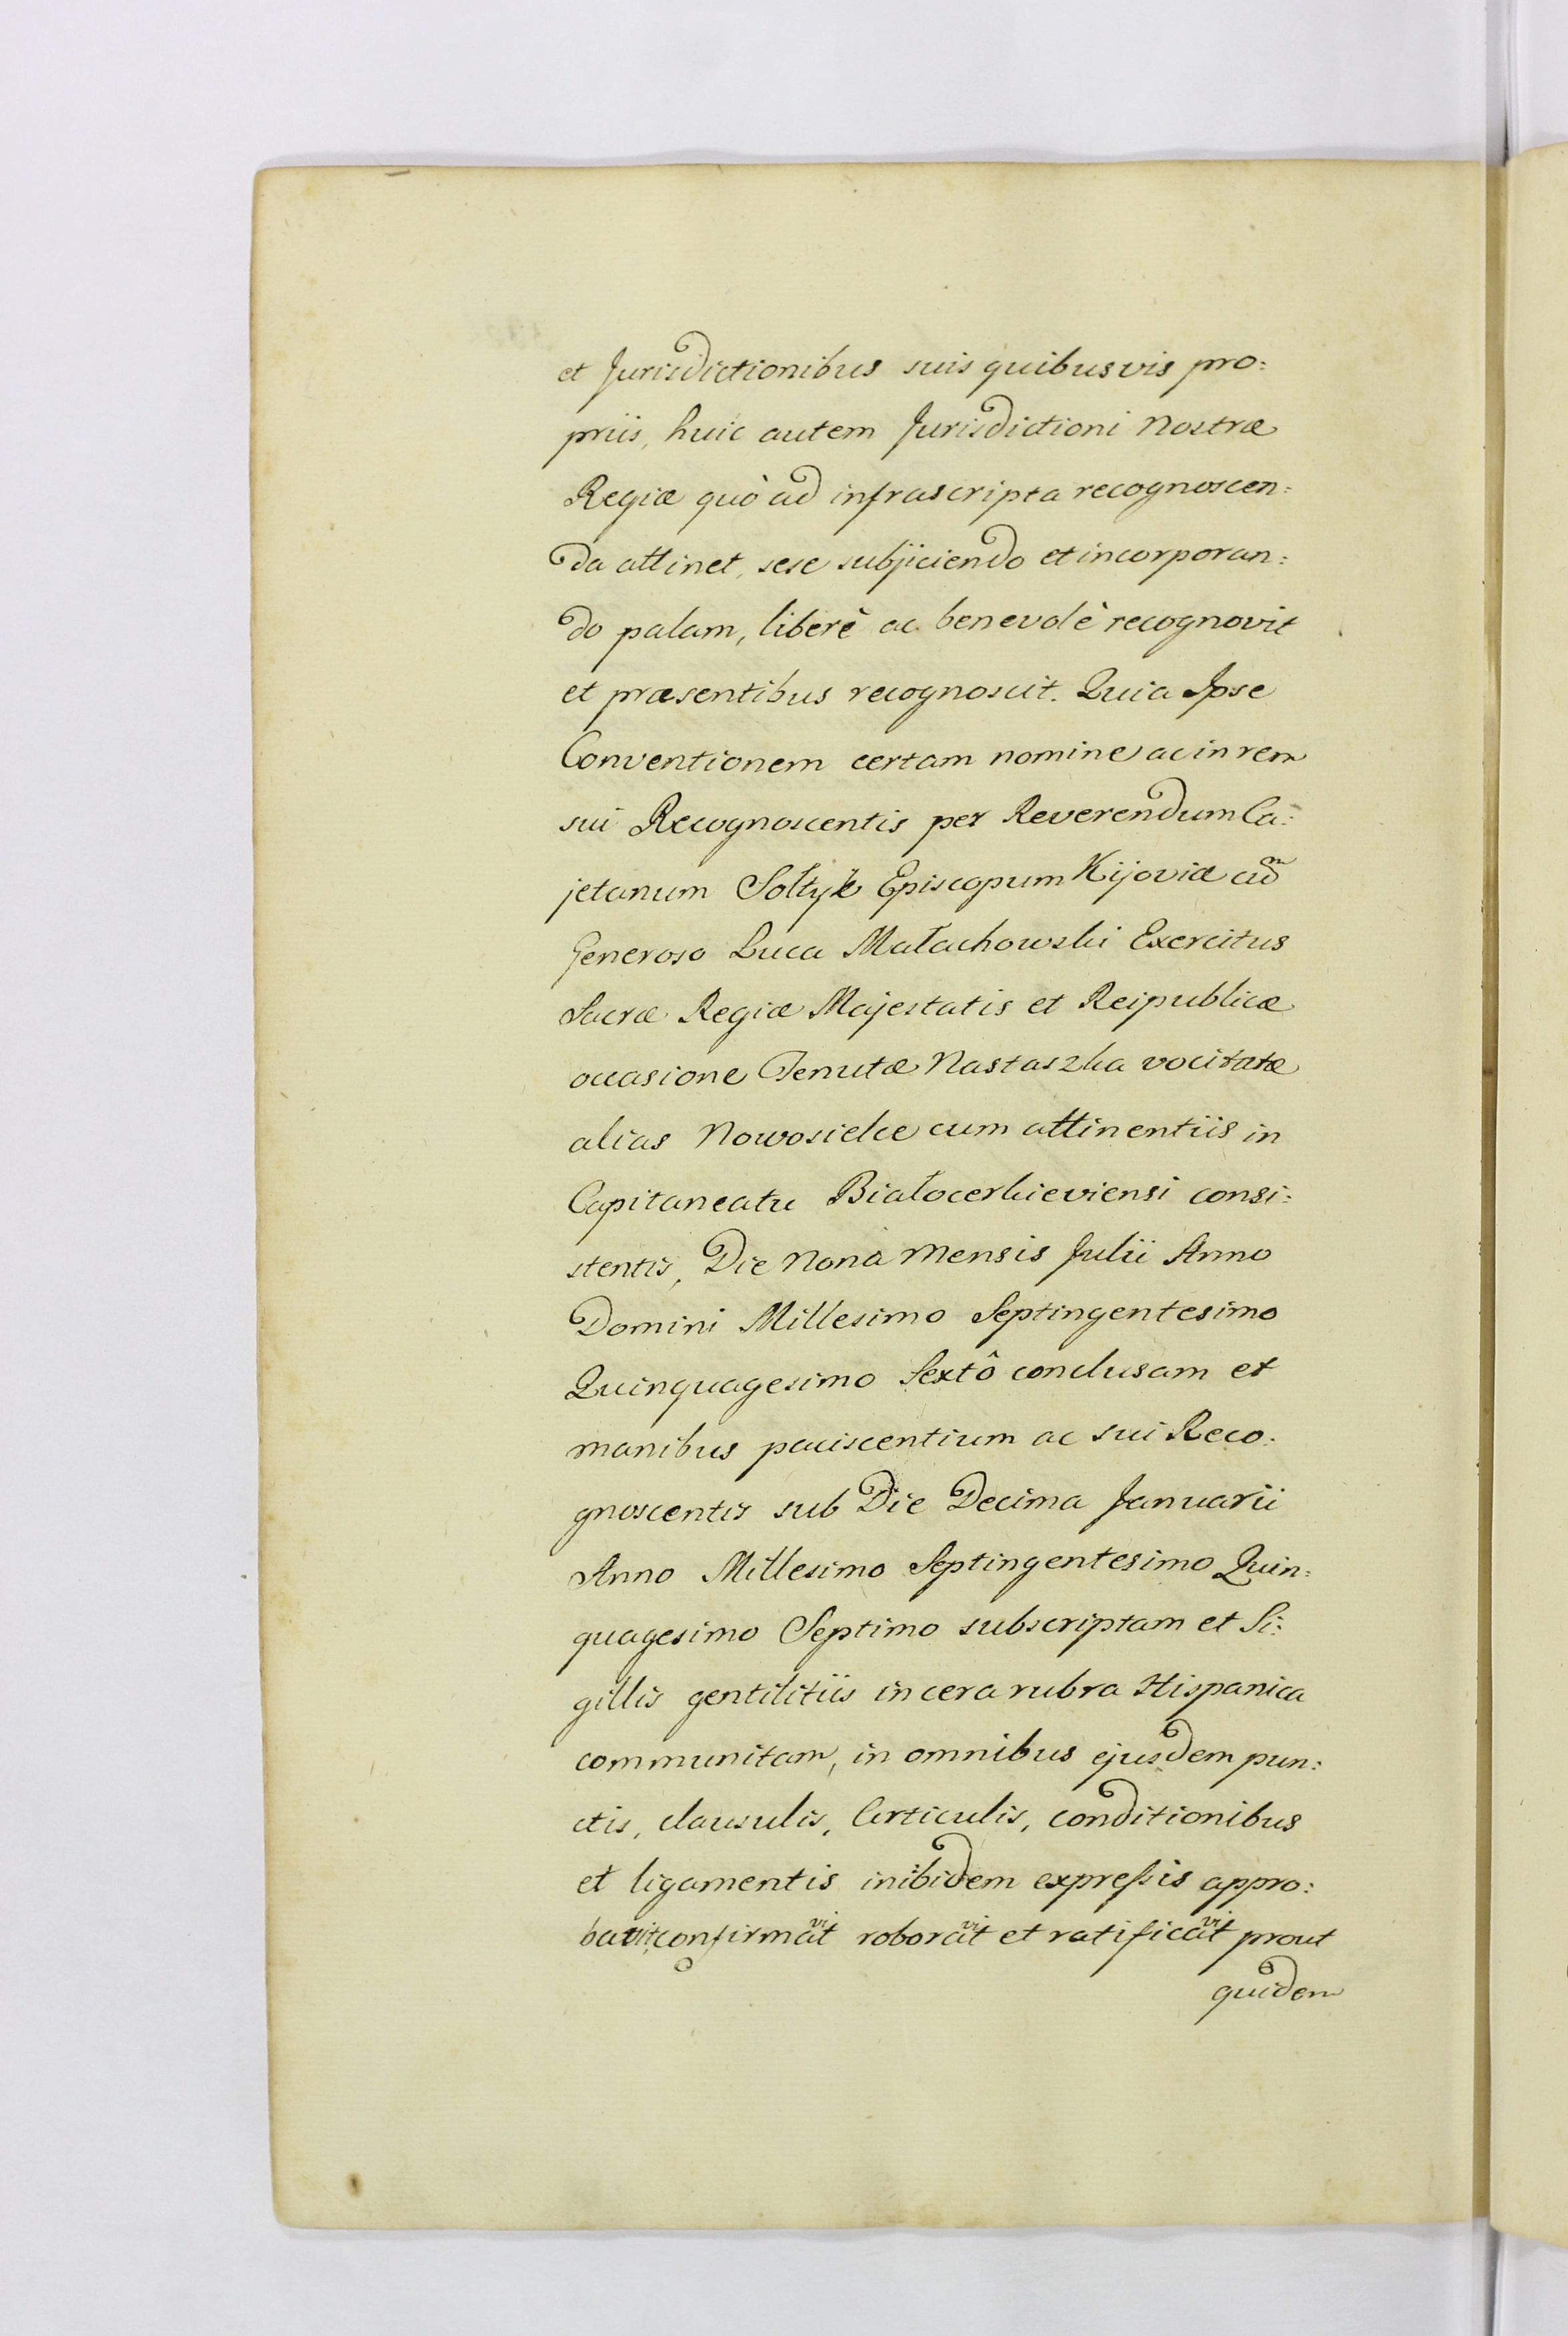 et Jurisdictionibus suis quibusvis pro:
priis, huic autem Jurisdictioni Nostræ
Regiæ quò ad infrascripta recognoscen:
da attinet, sese subjiciendo et incorporan:
do palam, liberè ac benevolè recognovit
et præsentibus recognoscit. Quia Ipse
Conventionem certam nomine ac in rem
sui Recognoscentis per Reverendum Ca:
jetanum Sołtyk Episcopum Kijoviæ cum
Generoso Luca Małachowski Exercitus
Sacræ Regiæ Majestatis et Reipublicæ
occasione Tenutæ Nastaszka vocitatæ
alias Nowosielce cum attinentiis in
Capitaneatu Białocerkieviensi consi:
stentis, Die Nona Mensis Julii Anno
Domini Millesimo Septingentesimo
Quinquagesimo Sextô conclusam et
manibus paciscentium ac sui Reco:
gnoscentis sub Die Decima Januarii
Anno Millesimo Septingentesimo Quin:
quagesimo Septimo subscriptam et Si:
gillis gentilitiis in cera rubra Hispanica
communitam, in omnibus ejusdem pun:
ctis, clausulis, Articulis, conditionibus
et ligamentis inibidem expreſsis appro:
bavit, confirmavit roboravit et ratificavit prout
quidem